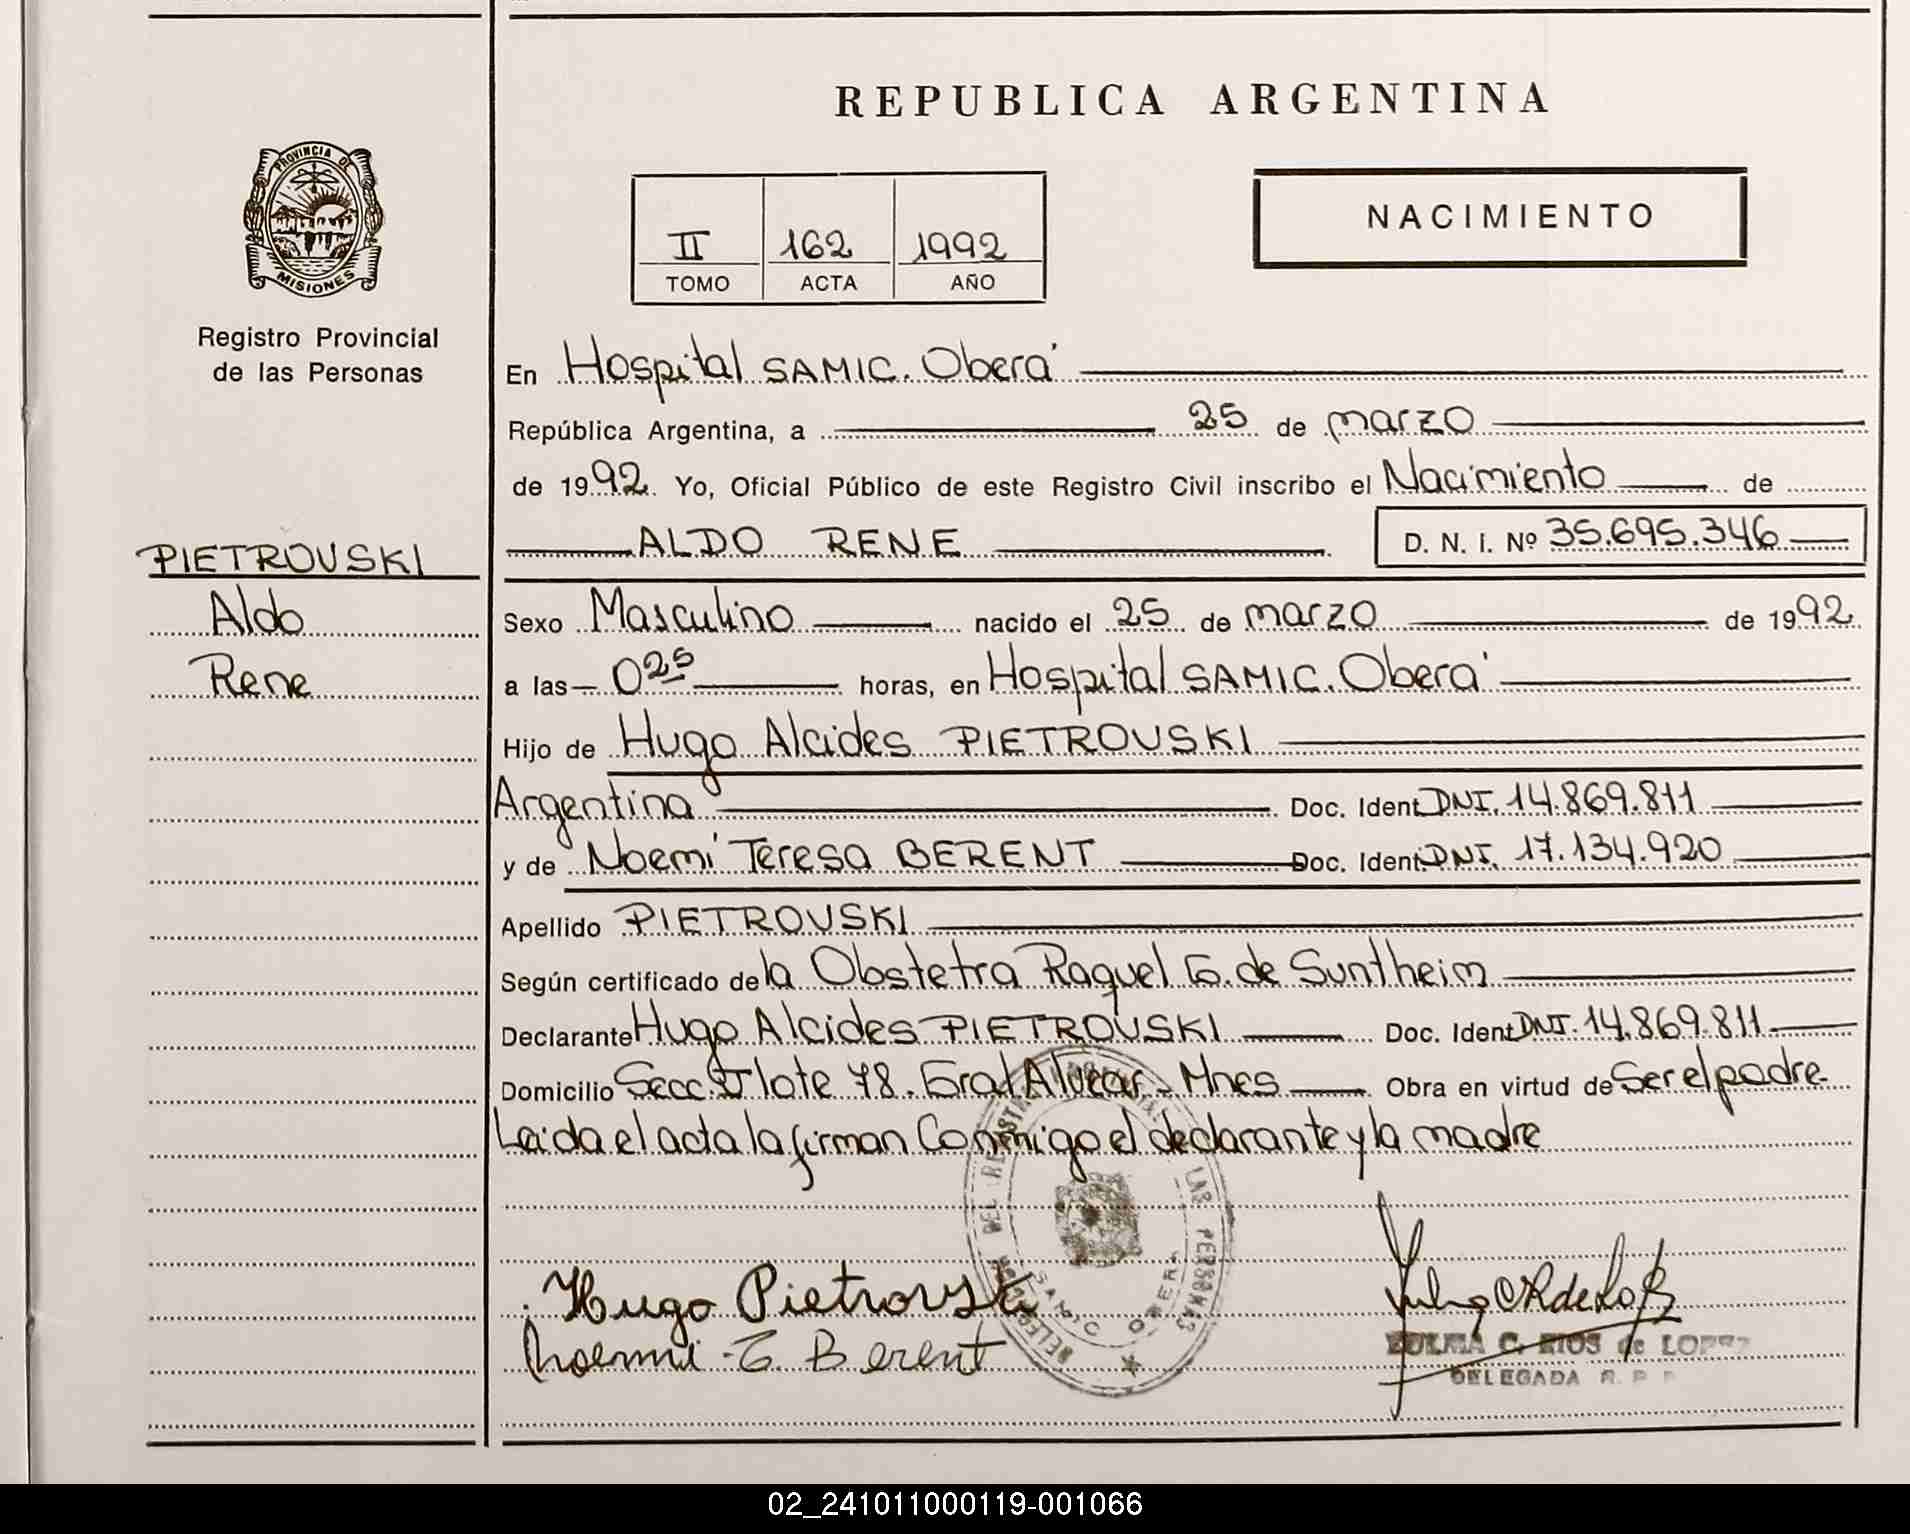 REPUBLICA ARGENTINA
PROVINCIA DE
MISIONES
Registro Provincial
de las Personas
II 162 1992
TOMO ACTA AÑO
NACIMIENTO
En Hospital SAMIC. Oberá
República Argentina, a 25 de marzo
de 1992. Yo, Oficial Público de este Registro Civil inscribo el Nacimiento de
ALDO RENE D. N. I. Nº 35.695.346
PIETROVSKI
Aldo
Rene
Sexo Masculino nacido el 25 de marzo de 1992
a las 0 25 horas, en Hospital SAMIC. Oberá
Hijo de Hugo Alcides PIETROVSKI
Argentina Doc. Ident DNI. 14.869.811
y de Noemí Teresa BERENT Doc. Ident. DNI. 17.134.920
Apellido PIETROVSKI
Según certificado de la Obstetra Raquel G. de Suntheim
Declarante Hugo Alcides PIETROVSKI Doc. Ident DNI. 14.869.811
Domicilio Secc. lote 78. Gral Alvear - Mnes Obra en virtud de Ser el padre
Leida el acta la firman Conmigo el declarante y la madre
LAS PERSONAS
SAMIC OBERA
Hugo Pietrovski
Noemi T. Berent
ZULMA C. RIOS de LOPEZ
DELEGADA R. P. P.
02_241011000119-001066